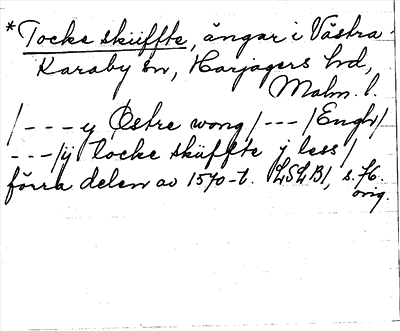 *Tocke skuffte, ängar i Västra
Karaby sn, Harjagers hd,
Malm. l.
/--- y Østre wong/---/Engh/
---/ÿ tocke skuffte j less/
förra delen av 1570-t. LSLB1, s. 76.
orig.